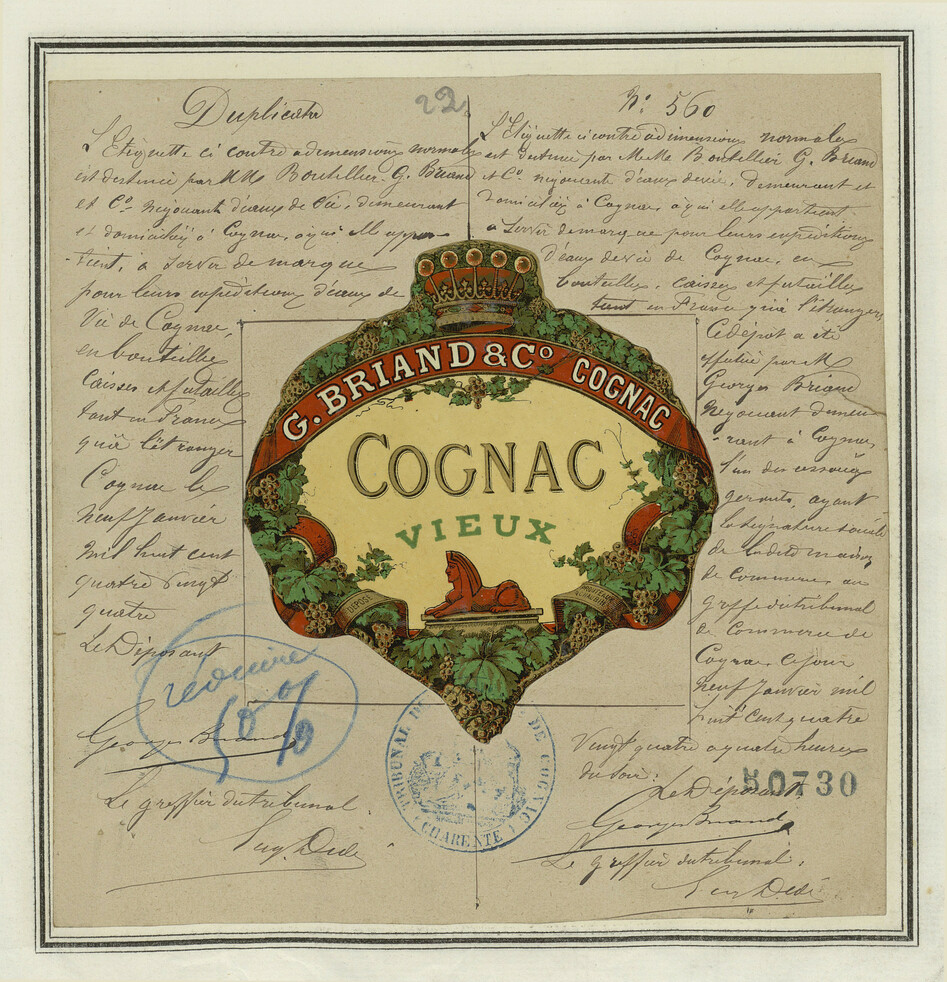 Duplicata
22
N: 560
L'Etiquette ci contre a dimensions normales
est destinée par MM Boutellier G. Briand
et Co. négociants d'eaux de Vie, demeurant
et domiciliés à Cognac, à qui elle appar-
tient, à servir de marque
pour leurs expeditions d'eaux de
Vie de Cognac,
en bouteilles
caisses et futailles
tant en France
qu'à l'étranger
Cognac le
neuf Janvier
mil huit cent
quatre vingt
quatre
Le Déposant
réduire
50 %
Georges Briand
Le greffier du tribunal.
Eug. Dedé
L'Etiquette ci contre a dimensions normales
est destinée par Mr Mr Boutellier G. Briand
et Co. négociants d'eaux de vie, demeurant et
domiciliés à Cognac, à qui elle appartient
à servir de marque pour leurs expéditions
d'eaux de vie de Cognac, en
bouteilles, caisses et futailles
tant en France qu'à l'étranger,
Ce dépot a été
effectué par M
Georges Briand
Négociant demeu-
rant à Cognac,
l'un des associés
gerants, ayant
la signature sociale
de la dite maison
de Commerce au
Greffe du tribunal
de Commerce de
Cognac, ce jour
neuf Janvier mil
huit cent quatre
Vingt quatre a quatre heures
du soir.
50730
Le Déposant.
Georges Briand
Le greffier du tribunal.
Eug Dedé
G. BRIAND & Co COGNAC
COGNAC
VIEUX
DÉPOSÉ
TRIBUNAL DE DE COGNAC
CHARENTE